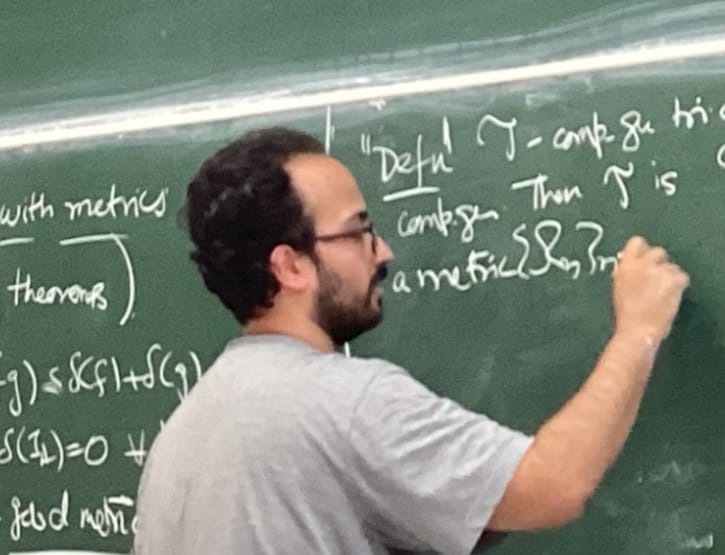 with metrics
theorems)
g) ≤ δ(f) + δ(g)
δ(1_L) = 0 ∀
good metric
"Defn" 𝒯 - comp. gen tri
comp. gen. Then 𝒯 is
a metric {